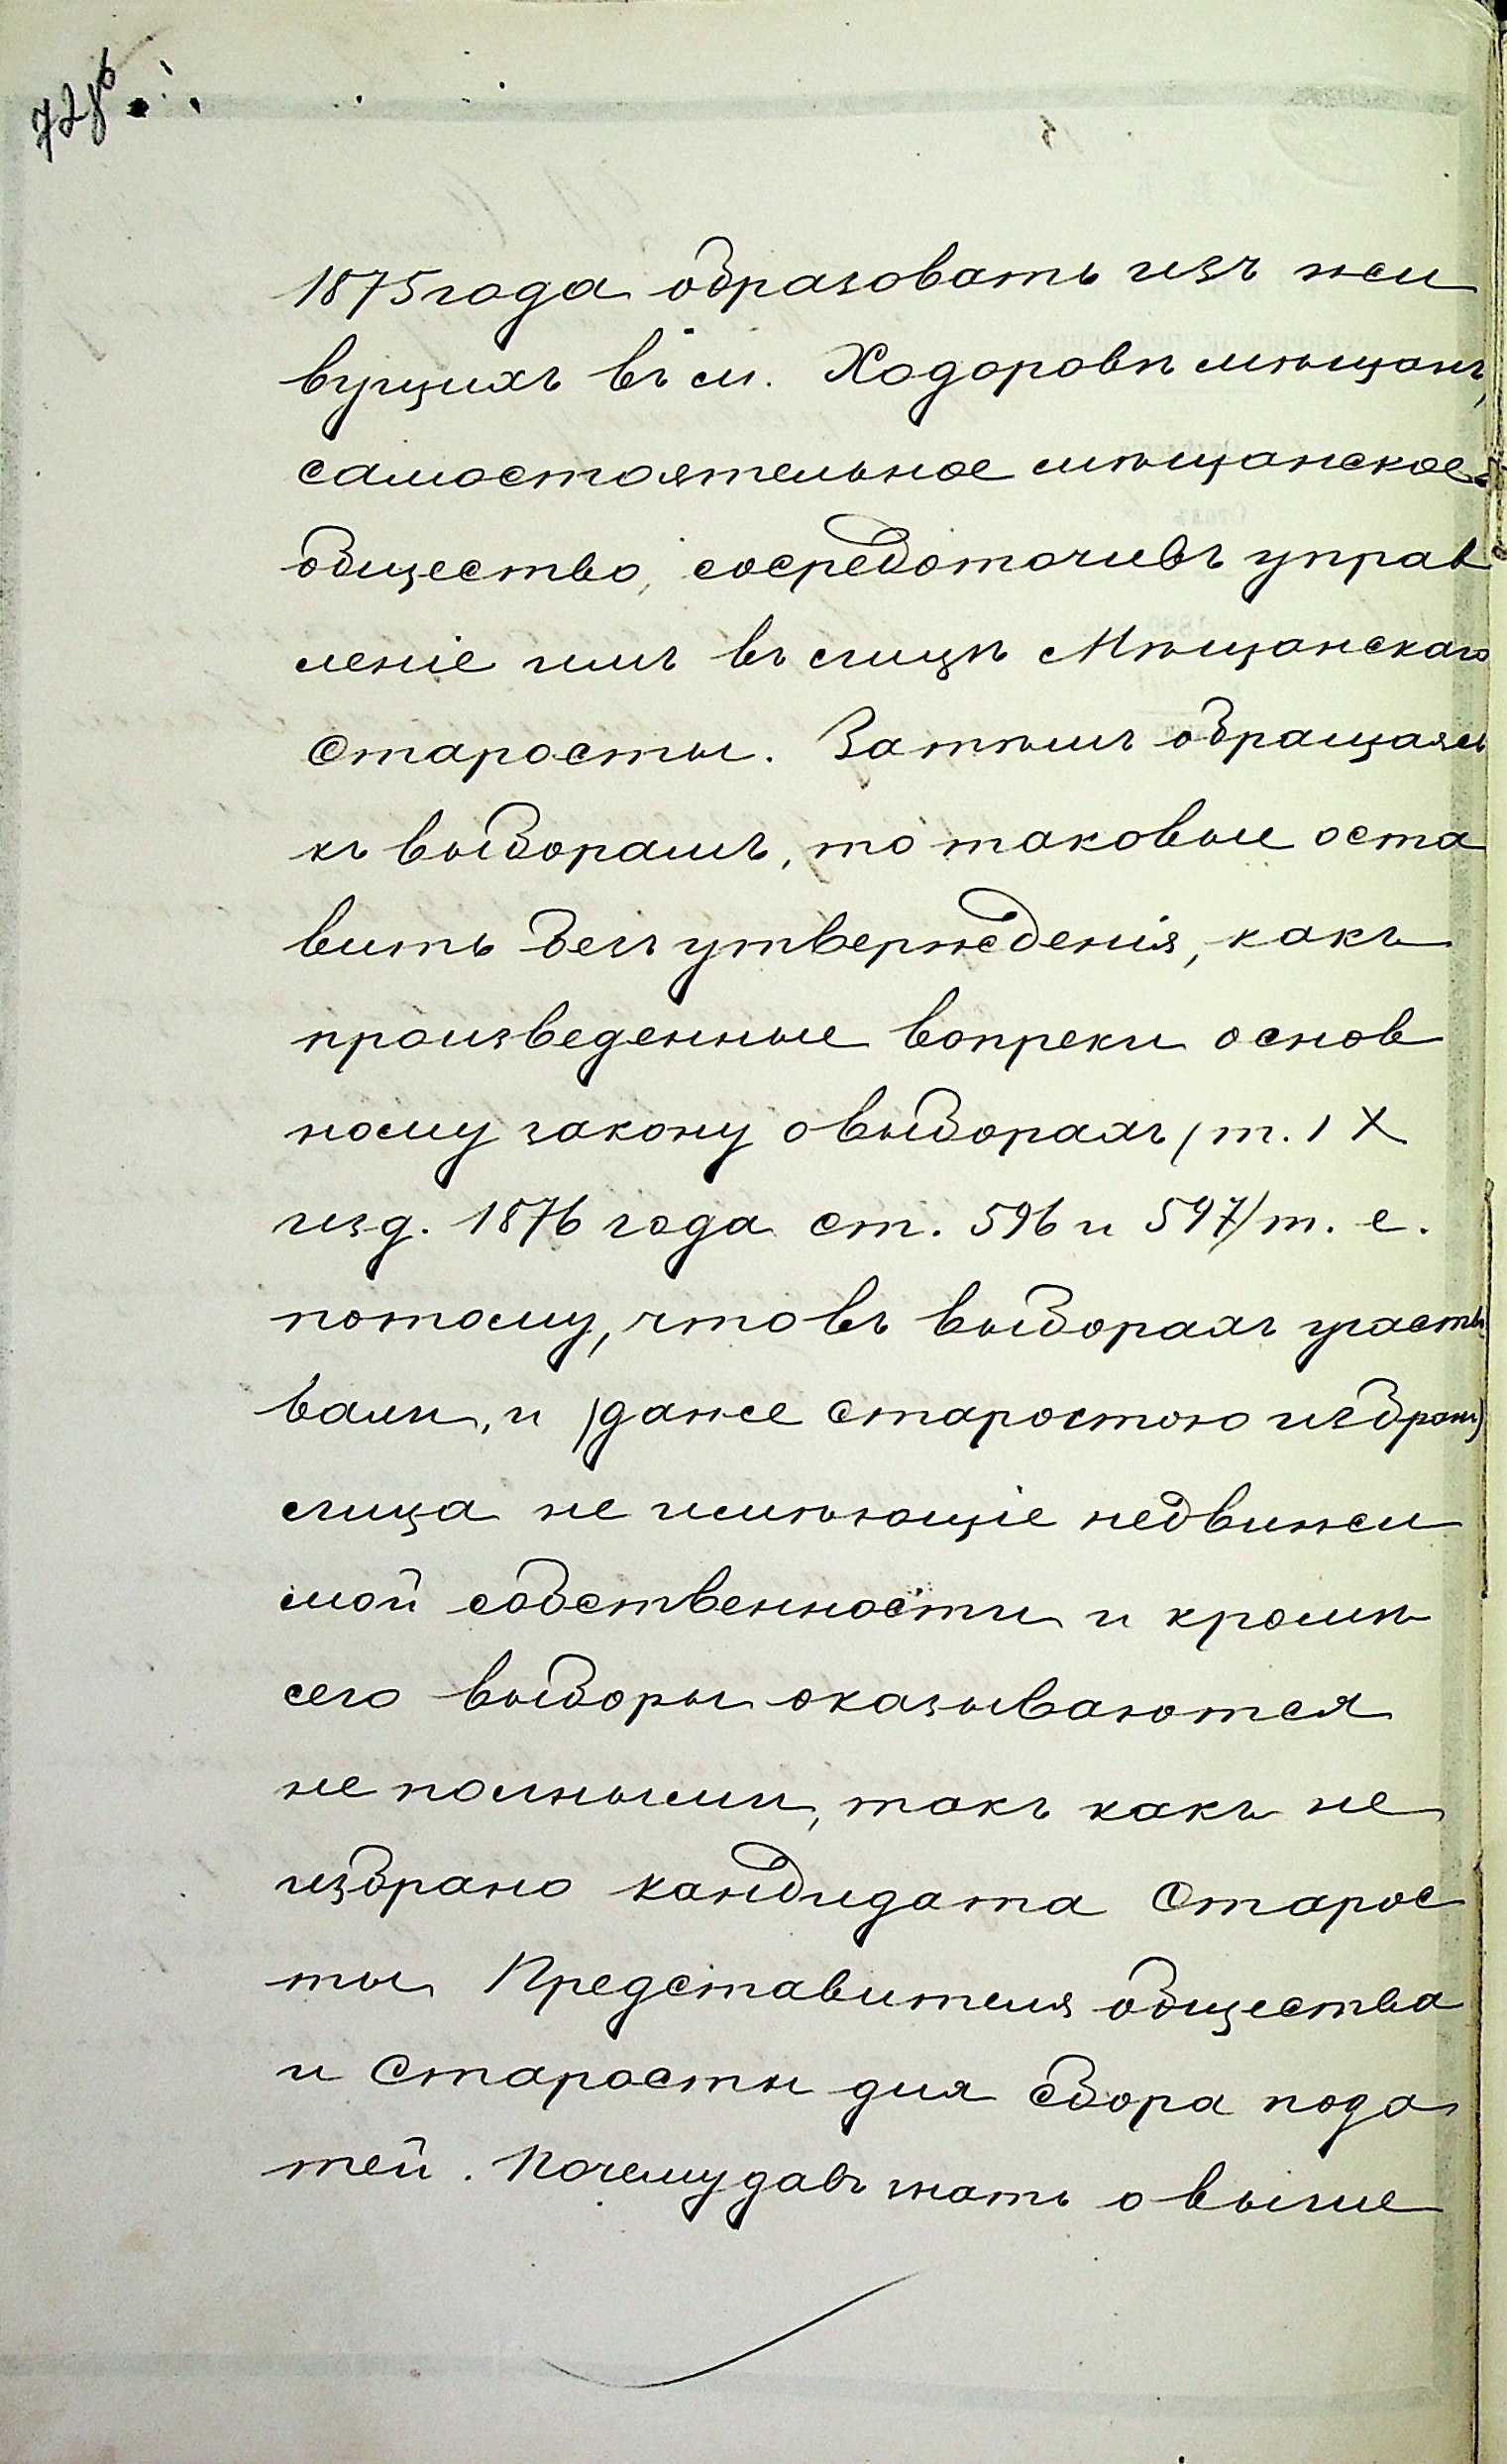 1875 года образовать изъ жи
вущихъ въ м. Ходоровѣ мѣщанъ,
самостоятельное мѣщанское
общество, сосредоточивъ управ
леніе имъ въ лицѣ Мѣщанскаго
Старосты. Затѣмъ обращаясь
къ выборамъ, то таковые оста
вить безъ утвержденія, какъ
произведенные вопреки основ
ному закону о выборахъ /т. IX
изд. 1876 года ст. 596 и 597/ т. е.
потому, что въ выборахъ участв
вали, и /даже старостою избранъ/
лица не имѣющіе недвижи
мой собственности и кромѣ
сего выборы оказываются
не полными, такъ какъ не
избрано кандидата Старос
ты Представителя общества
и Старосты для сбора пода
тей. Почему давъ знать о выше